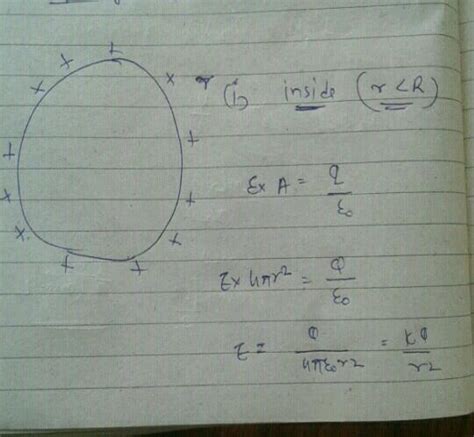 (i) inside (r < R)
E x A = q/ε₀
E x 4πr² = Q/ε₀
E = Q/4πε₀r² = kQ/r²